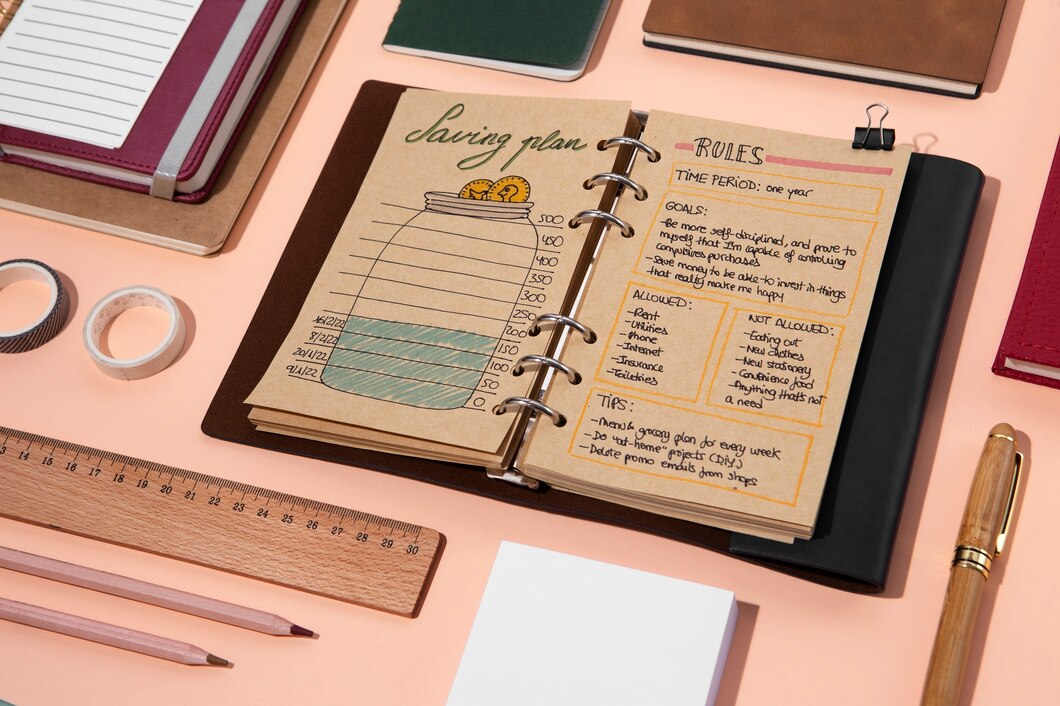 Saving plan
500
450
400
350
300
250
16/2/22 200
8/2/22 150
20/1/22 100
9/1/22 50
0
RULES
TIME PERIOD: one year
GOALS:
-Be more self-disciplined, and prove to
myself that I'm capable of controlling
compulsives purchases
-Save money to be able to invest in things
that really make me happy
ALLOWED:
-Rent
-Utilities
-Phone
-Internet
-Insurance
-Toiletries
NOT ALLOWED:
-Eating out
-New clothes
-New stationery
-Convenience food
-Anything that's not
a need
TIPS:
-Menu & grocery plan for every week
-Do "at-home" projects (DIY)
-Delete promo emails from shops
14 15 16 17 18 19 20 21 22 23 24 25 26 27 28 29 30